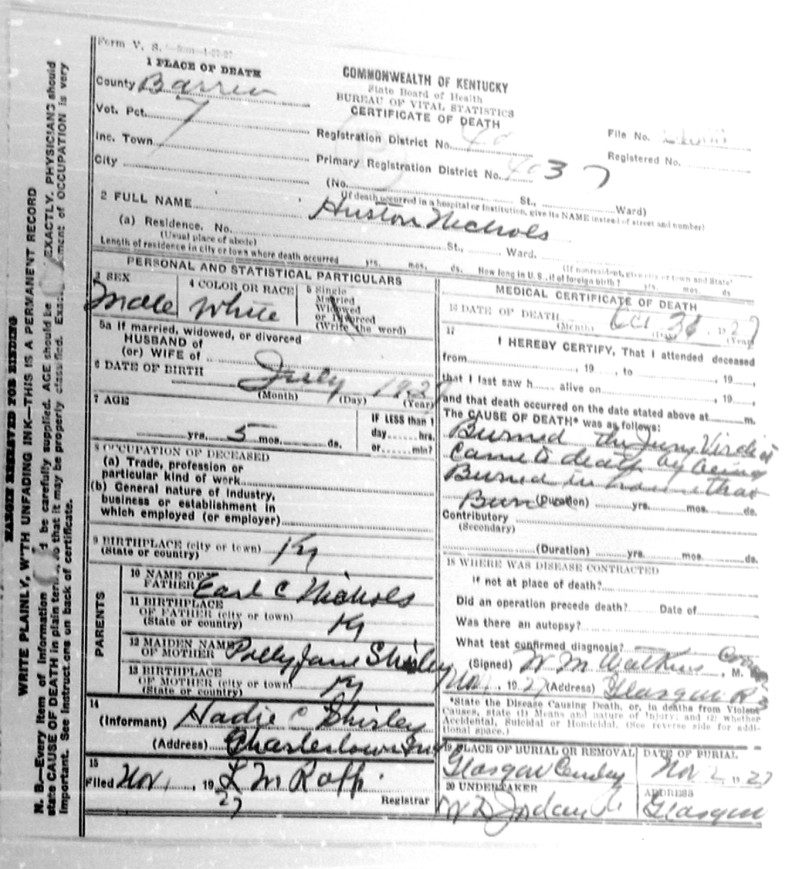 Form V. S.
1 PLACE OF DEATH
County Barren
Vot. Pct. 7
Inc. Town
City
COMMONWEALTH OF KENTUCKY
State Board of Health
BUREAU OF VITAL STATISTICS
CERTIFICATE OF DEATH
Registration District No.
Primary Registration District No. 4037
File No.
Registered No.
(No. St., Ward)
(If death occurred in a hospital or institution, give its NAME instead of street and number)
2 FULL NAME Huston Nichols
(a) Residence. No. St., Ward.
(Usual place of abode) (If nonresident, give city or town and State)
Length of residence in city or town where death occurred yrs. mos. ds. How long in U. S., if of foreign birth? yrs. mos. ds.
PERSONAL AND STATISTICAL PARTICULARS
3 SEX
Male
4 COLOR OR RACE
White
5 Single
Married
Widowed
or Divorced
(Write the word)
5a If married, widowed, or divorced
HUSBAND of
(or) WIFE of
6 DATE OF BIRTH July 1927
(Month) (Day) (Year)
7 AGE
yrs. 5 mos. ds.
IF LESS than 1
day hrs.
or min?
8 OCCUPATION OF DECEASED
(a) Trade, profession or
particular kind of work
(b) General nature of industry,
business or establishment in
which employed (or employer)
9 BIRTHPLACE (city or town) Ky
(State or country)
PARENTS
10 NAME OF
FATHER Earl C Nichols
11 BIRTHPLACE
OF FATHER (city or town)
(State or country) Ky
12 MAIDEN NAME
OF MOTHER Polly Jane Shirley
13 BIRTHPLACE
OF MOTHER (city or town)
(State or country) Ky
14
(Informant) Hadie C Shirley
(Address)
15
Filed Nov 1, 1927 L M
Registrar
MEDICAL CERTIFICATE OF DEATH
16 DATE OF DEATH Oct 31 1927
(Month) (Day) (Year)
17
I HEREBY CERTIFY, That I attended deceased
from , 19 , to , 19
that I last saw h alive on , 19
and that death occurred on the date stated above at m.
The CAUSE OF DEATH* was as follows:
Burned the Jury Virdict
Came to death by being
Burned in house that
Burned
(Duration) yrs. mos. ds.
Contributory
(Secondary)
(Duration) yrs. mos. ds.
18 WHERE WAS DISEASE CONTRACTED
if not at place of death?
Did an operation precede death? Date of
Was there an autopsy?
What test confirmed diagnosis?
(Signed) W M Watkins , M.
Nov 1, 1927 (Address) Glasgow R 3
*State the Disease Causing Death, or, in deaths from Violent
Causes, state (1) Means and nature of Injury, and (2) whether
Accidental, Suicidal or Homicidal. (See reverse side for addi-
tional space.)
19 PLACE OF BURIAL OR REMOVAL
Glasgow
DATE OF BURIAL
Nov 2 1927
20 UNDERTAKER
Jordan
ADDRESS
Glasgow
MARGIN RESERVED FOR BINDING
WRITE PLAINLY, WITH UNFADING INK—THIS IS A PERMANENT RECORD
N. B.—Every item of information d be carefully supplied. AGE should be EXACTLY. PHYSICIANS should
state CAUSE OF DEATH in plain ter so that it may be properly classified. Exac ment of OCCUPATION is very
important. See instructions on back of certificate.